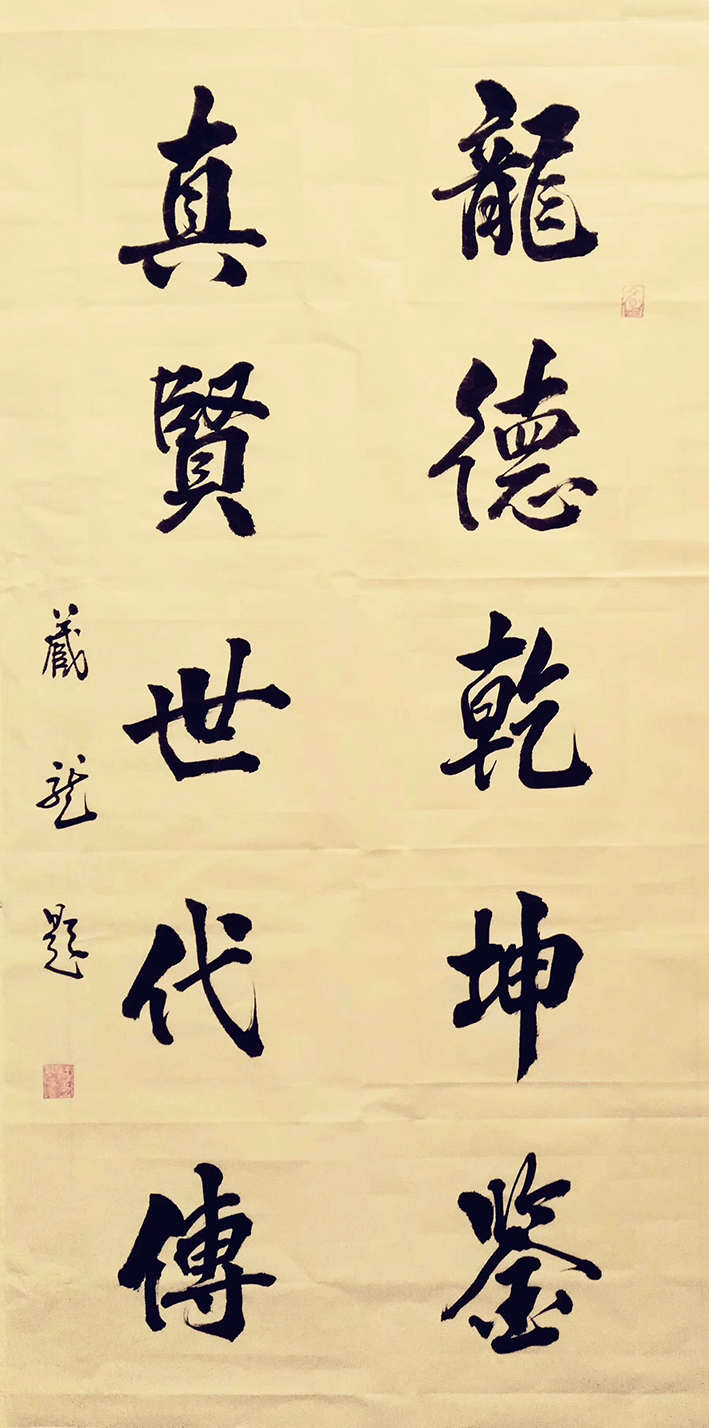 龍德乾坤鉴
真賢世代傳
藏龙題